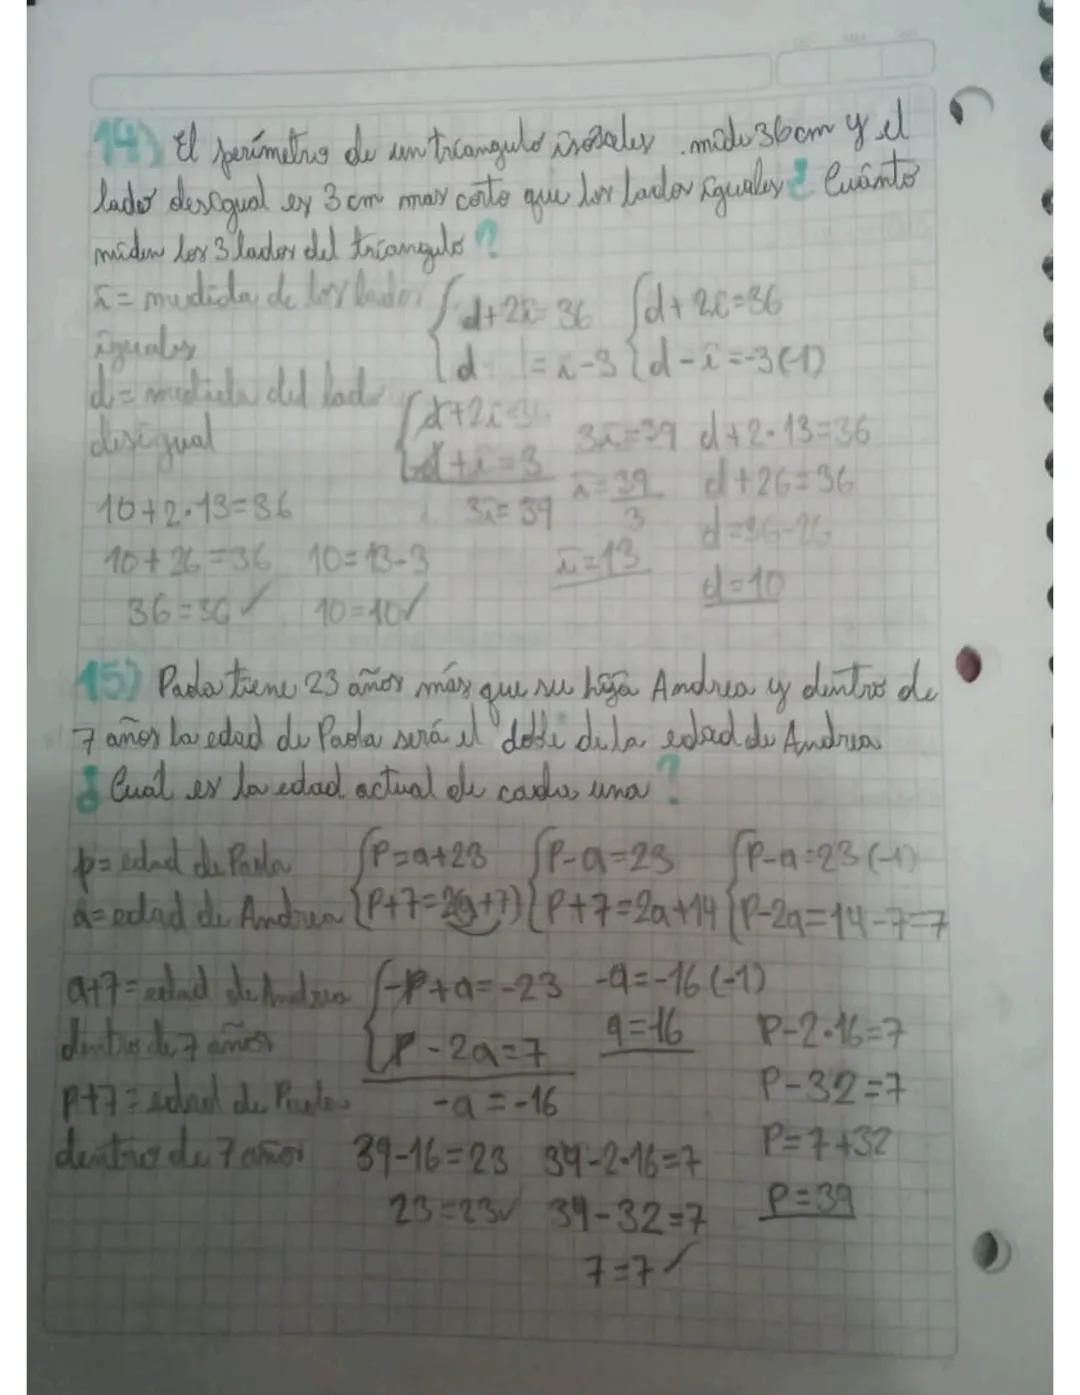 14) El perímetro de un triangulo isosceles mide 36cm y el
lado desigual es 3 cm mas corto que los lados iguales ¿Cuánto
miden los 3 lados del triangulo?
i = medida de los lados
iguales
d = medida del lado
desigual
d+2i=36
d = i-3
d+2i=36
d-i=-3(-1)
d+2i=36
-d+i=3
3i=39
3i=39
i=39/3
i=13
d+2·13=36
d+26=36
d=36-26
d=10
10+2·13=36
10+26=36 10=13-3
36=36✓ 10=10✓
15) Paola tiene 23 años más que su hija Andrea y dentro de
7 años la edad de Paola será el doble de la edad de Andrea
¿Cuál es la edad actual de cada una?
p= edad de Paola
a= edad de Andrea
P=a+23
P+7=2(a+7)
P-a=23
P+7=2a+14
P-a=23(-1)
P-2a=14-7=7
a+7=edad de Andrea
dentro de 7 años
p+7=edad de Paola
dentro de 7 años
-P+a=-23
P-2a=7
-a=-16
-a=-16(-1)
a=16
P-2·16=7
P-32=7
P=7+32
P=39
39-16=23 39-2·16=7
23=23✓ 39-32=7
7=7✓